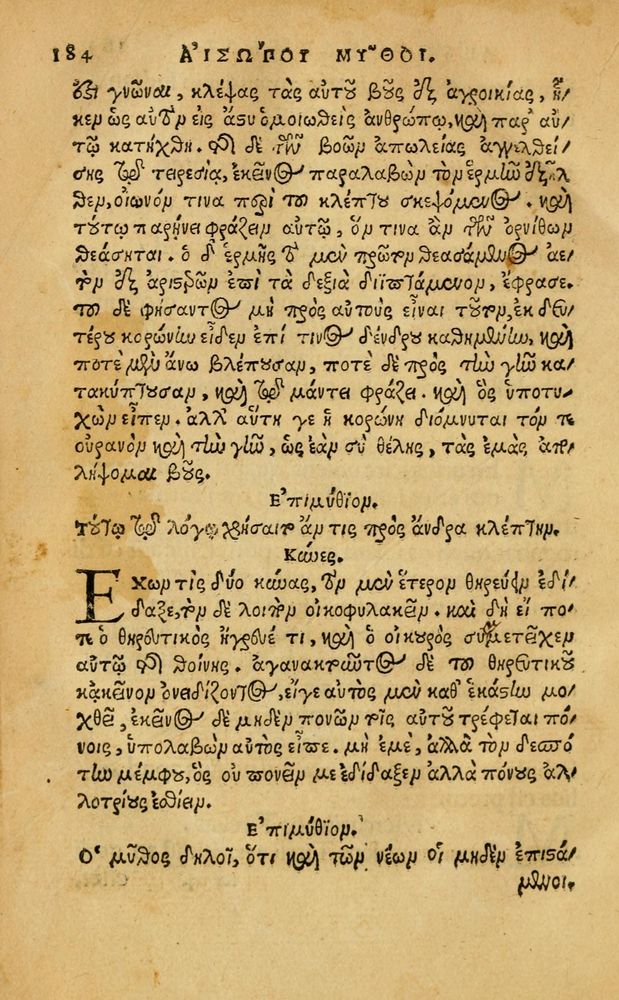 184 ΑἸΣΩΠΟΥ ΜΥ͂ΘΟΙ.
ἐπιγνῶναι, κλέψας τὰς αὐτοῦ βοῦς ἐξ ἀγροικίας, ἧ/
κεν ὡς αὐτὸν εἰς ἄστυ ὁμοιωθεὶς ἀνθρώπῳ, καὶ παρ' αὐ/
τῷ κατήχθη. τῆς δὲ τῶν βοῶν ἀπωλείας ἀγγελθεί/
σης τῷ τειρεσίᾳ, ἐκεῖνος παραλαβὼν τὸν ἑρμῆν ἐξῆλ
θεν, οἰωνόν τινα περὶ τοῦ κλέπτου σκεψόμενος. καὶ
τούτῳ παρῄνει φράζειν αὐτῷ, ὅν τινα ἂν τῶν ὀρνίθων
θεάσηται. ὁ δ' ἑρμῆς τὸ μὲν πρῶτον θεασάμενος ἀε/
τὸν ἐξ ἀριστερῶν ἐπὶ τὰ δεξιὰ διϊπτάμενον, ἔφρασε.
τοῦ δὲ φήσαντος μὴ πρὸς αὐτοὺς εἶναι τοῦτον, ἐκ δευ/
τέρου κορώνην εἶδεν ἐπί τινος δένδρου καθημένην, καὶ
ποτὲ μὲν ἄνω βλέπουσαν, ποτὲ δὲ πρὸς τὴν γῆν κα/
τακύπτουσαν, καὶ τῷ μάντει φράζει. καὶ ὃς ὑποτυ/
χὼν εἶπεν. ἀλλ' αὕτη γε ἡ κορώνη διόμνυται τόν τε
οὐρανὸν καὶ τὴν γῆν, ὡς ἐὰν σὺ θέλῃς, τὰς ἐμὰς ἀπο
λήψομαι βοῦς.
Ἐπιμύθιον.
Τούτῳ τῷ λόγῳ χρήσαιτο ἄν τις πρὸς ἄνδρα κλέπτην.
Κύνες.
ἜΧων τὶς δύο κύνας, τὸν μὲν ἕτερον θηρεύειν ἐδί/
δαξε, τὸν δὲ λοιπὸν οἰκοφυλακεῖν. καὶ δὴ εἴ πο/
τε ὁ θηρευτικὸς ἤγρευέ τι, καὶ ὁ οἰκουρὸς συμμετεῖχεν
αὐτῷ τῆς θοίνης. ἀγανακτοῦντος δὲ τοῦ θηρευτικοῦ
κἀκεῖνον ὀνειδίζοντος, εἴγε αὐτὸς μὲν καθ' ἑκάστην μο/
χθεῖ, ἐκεῖνος δὲ μηδὲν πονῶν τοῖς αὐτοῦ τρέφεται πό/
νοις, ὑπολαβὼν αὐτὸς εἶπε. μὴ ἐμὲ, ἀλλὰ τὸν δεσπό/
την μέμφου, ὃς οὐ πονεῖν με ἐδίδαξεν ἀλλὰ πόνους ἀλ/
λοτρίους ἐσθίειν.
Ἐπιμύθιον.
Ὁ μῦθος δηλοῖ, ὅτι καὶ τῶν νέων οἱ μηδὲν ἐπιστά/
μενοι.